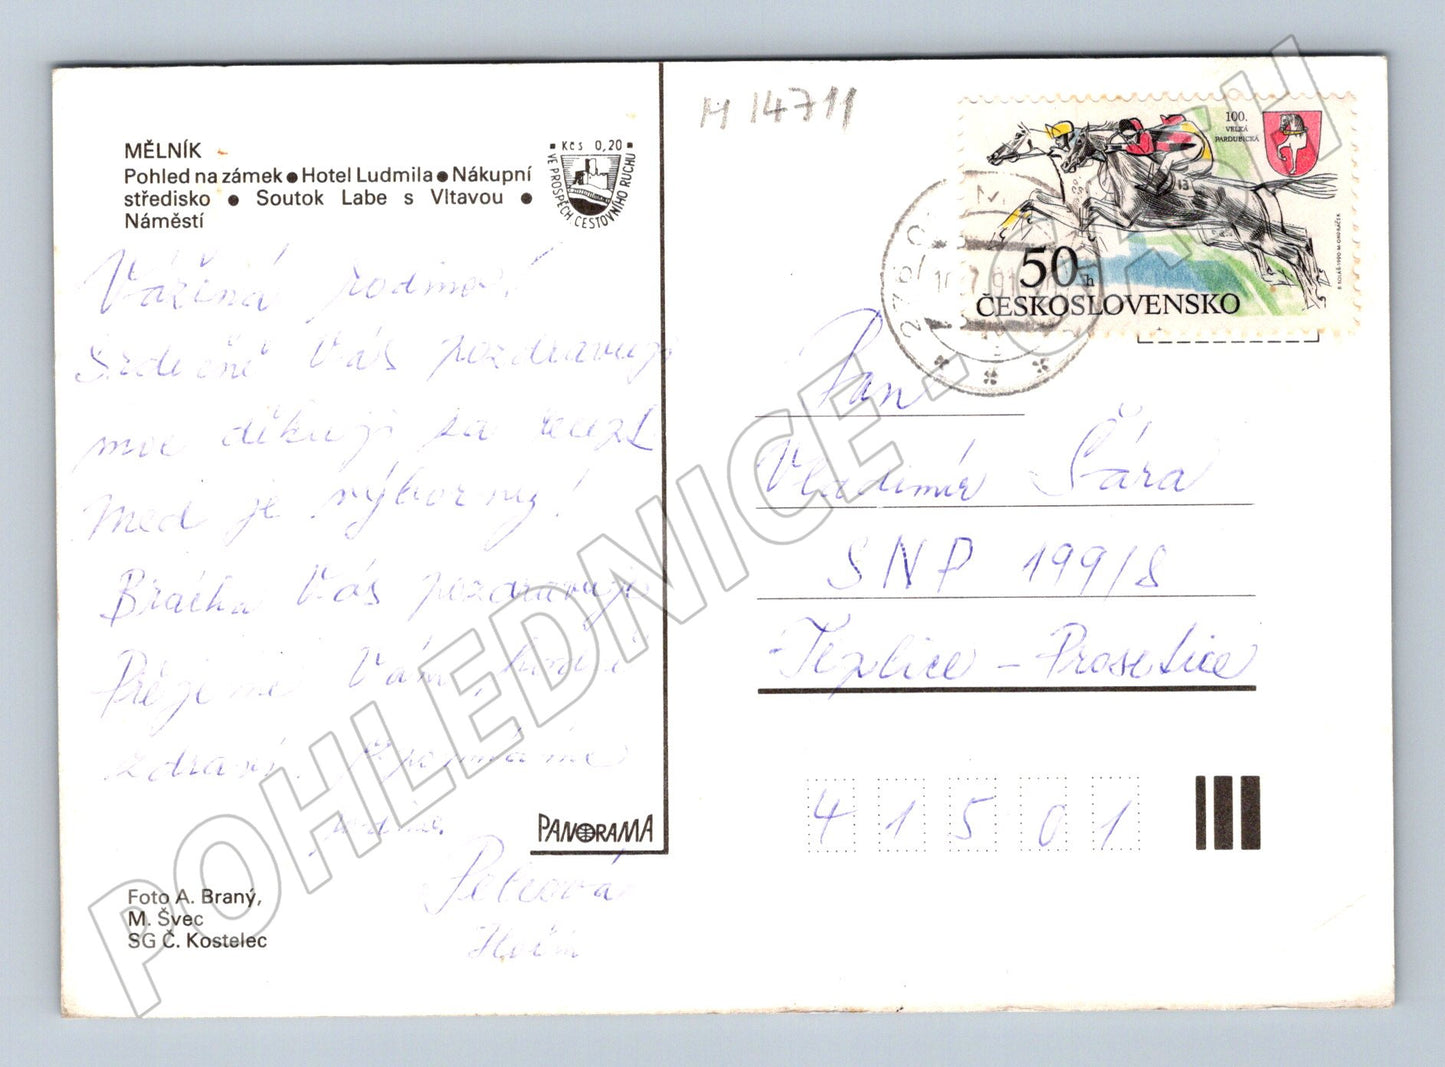 MĚLNÍK
Pohled na zámek ● Hotel Ludmila ● Nákupní
středisko ● Soutok Labe s Vltavou ●
Náměstí
Kčs 0,20
VE PROSPĚCH CESTOVNÍHO RUCHU
Vážená rodino!
Srdečně Vás pozdravuji
moc děkuji za recept
Med je výborný!
Brácha Vás pozdravuje
Přejeme Vám hodně
zdraví. Vzpomínáme
Petrová
Hořín
PANORAMA
Foto A. Braný,
M. Švec
SG Č. Kostelec
M 14711
100.
VELKÁ
PARDUBICKÁ
50 h
ČESKOSLOVENSKO
Pan
Vladimír Šára
SNP 199/8
Teplice - Prosetice
41501
POHLEDNICE.CASH